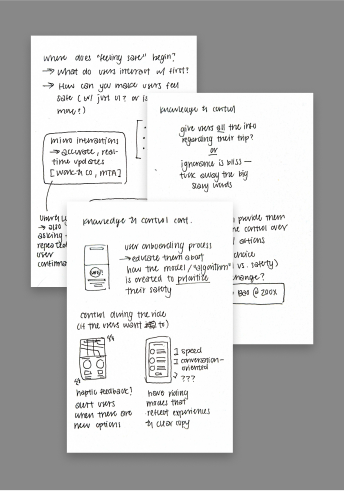 where does "feeling safe" begin?
→ what do users interact w/ first?
→ How can you make users feel
safe ( w/ just UI? or is
more?)
micro interactions
→ accurate, real-
time updates
[work & co, MTA]
users
→ also
asking
repeated
user
confirma
knowledge & control
give users all the info
regarding their trip?
or
ignorance is bliss —
tuck away the big
scary words
provide them
control over
options
choice
vs. safety)
change?
@ zoox
knowledge & control cont.
user onboarding process
→ educate them about
how the model/"algorithm"
is created to prioritize
their safety
control during the ride
(if the users want to)
haptic feedback?
alert users
when there are
new options
speed
conversation-
oriented
???
have riding
modes that
reflect experiences
& clear copy